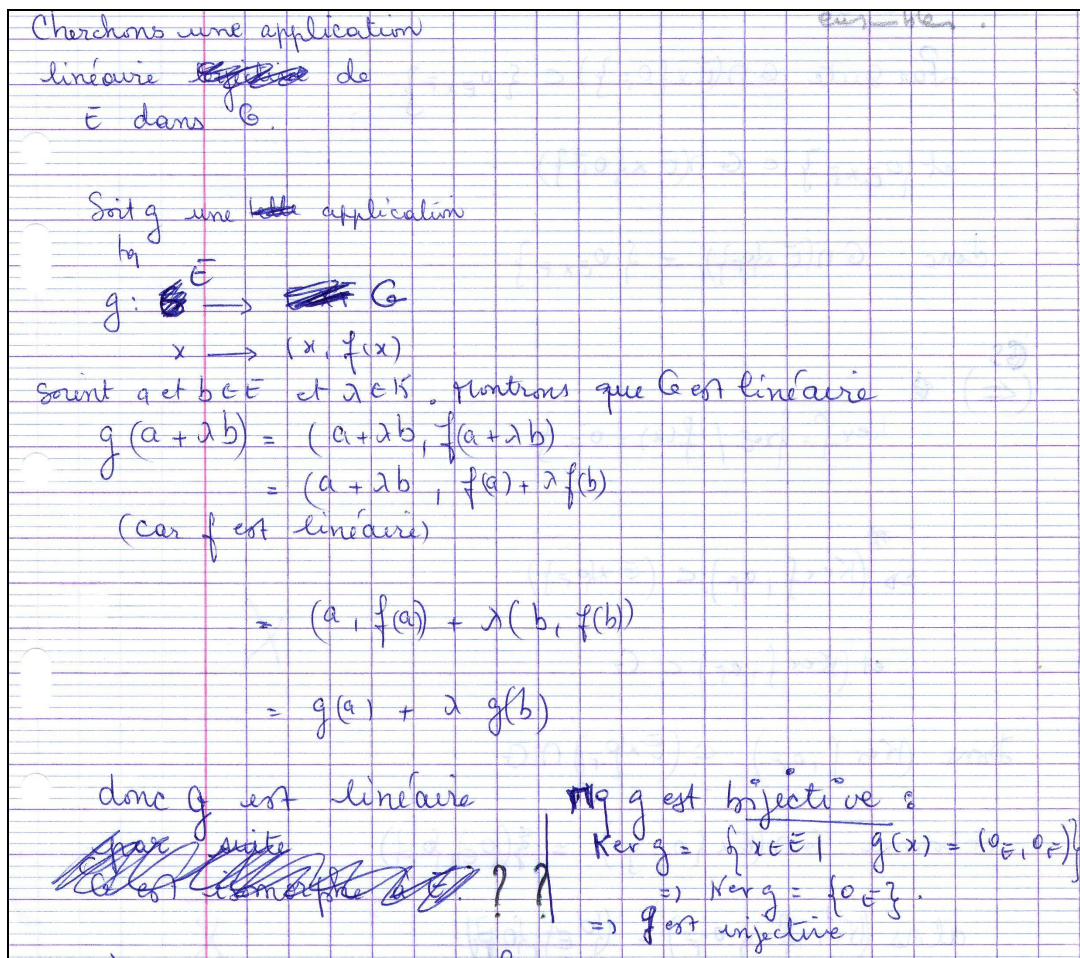 Cherchons une application
linéaire de
E dans G.
Soit g une application
tq
g : E → G
x → (x, f(x)
Soient a et b ∈ E et λ ∈ K. Montrons que G est linéaire
g(a + λb) = (a + λb, f(a + λb)
= (a + λb, f(a) + λf(b)
(car f est linéaire)
= (a, f(a)) + λ(b, f(b))
= g(a) + λ g(b)
donc g est linéaire
par suite
G est isomorphe à E. ? ?
Mq g est bijective :
Ker g = {x ∈ E | g(x) = (0E, 0F)}
=> Ker g = {0E}.
=> g est injective